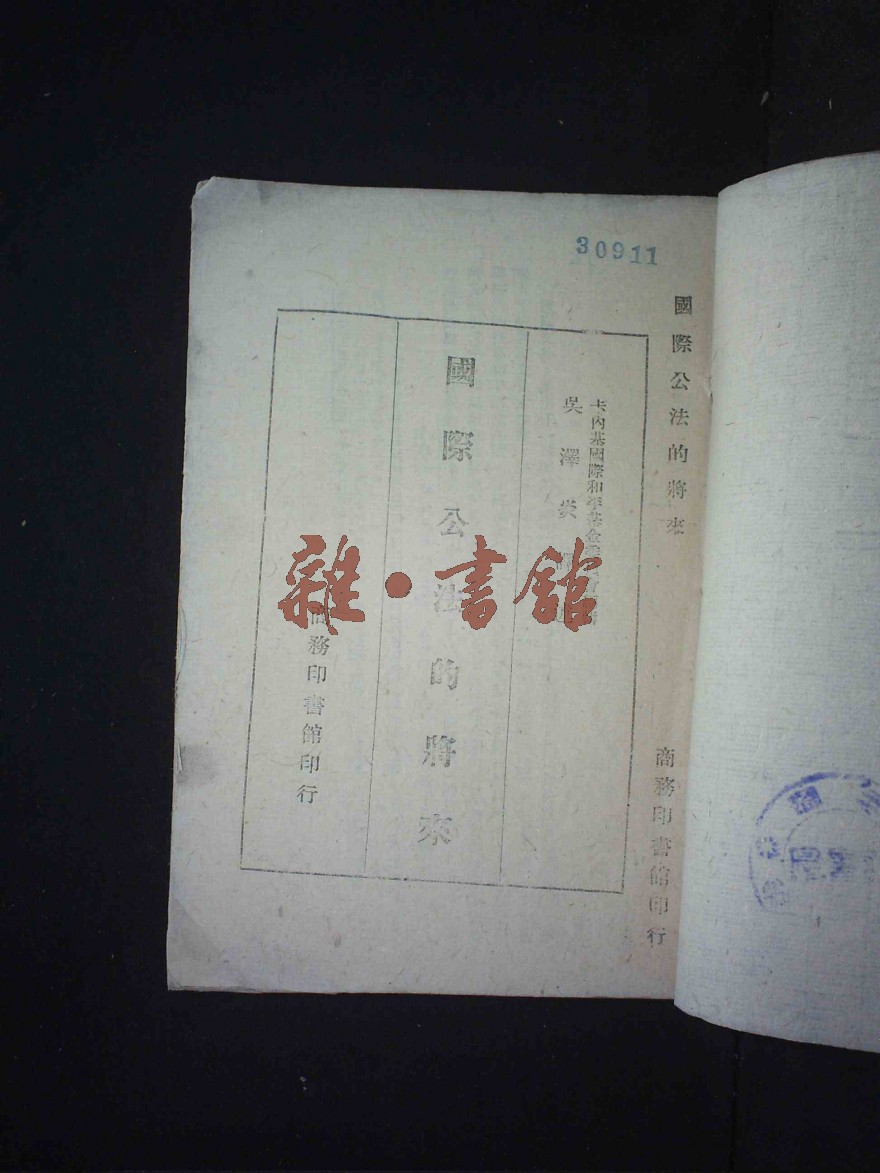 30911
國際公法的將來
商務印書館印行
卡內基國際和平基金
吳澤炎
國際公法的將來
商務印書館印行
雜·書館